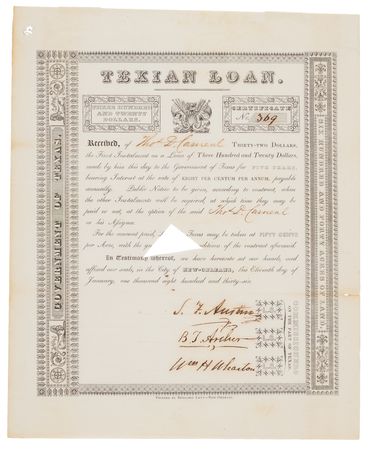 TEXIAN LOAN.
THREE HUNDRED
AND TWENTY
DOLLARS.
CERTIFICATE
No. 369
Received, of Tho. D. Carneal THIRTY-TWO DOLLARS,
the First Instalment on a Loan of Three Hundred and Twenty Dollars,
made by him this day to the Government of Texas for FIVE YEARS,
bearing Interest at the rate of EIGHT PER CENTUM PER ANNUM, payable
annually. Public Notice to be given, according to contract, when
the other Instalments will be required, at which time they may be
paid or not, at the option of the said Tho. D. Carneal
or his Assigns.
For the amount paid, Texas may be taken at FIFTY CENTS
per Acre, with the ditions of the contract aforesaid.
In Testimony whereof, we have hereunto set our hands, and
affixed our seals, in the City of NEW-ORLEANS, this Eleventh day of
January, one thousand eight hundred and thirty-six.
S. F. Austin
B. T. Archer
Wm H Wharton
COMMISSIONERS
ON THE PART OF TEXAS
GOVERNMENT OF TEXAS.
SIX HUNDRED AND FORTY ACRES OF LAND.